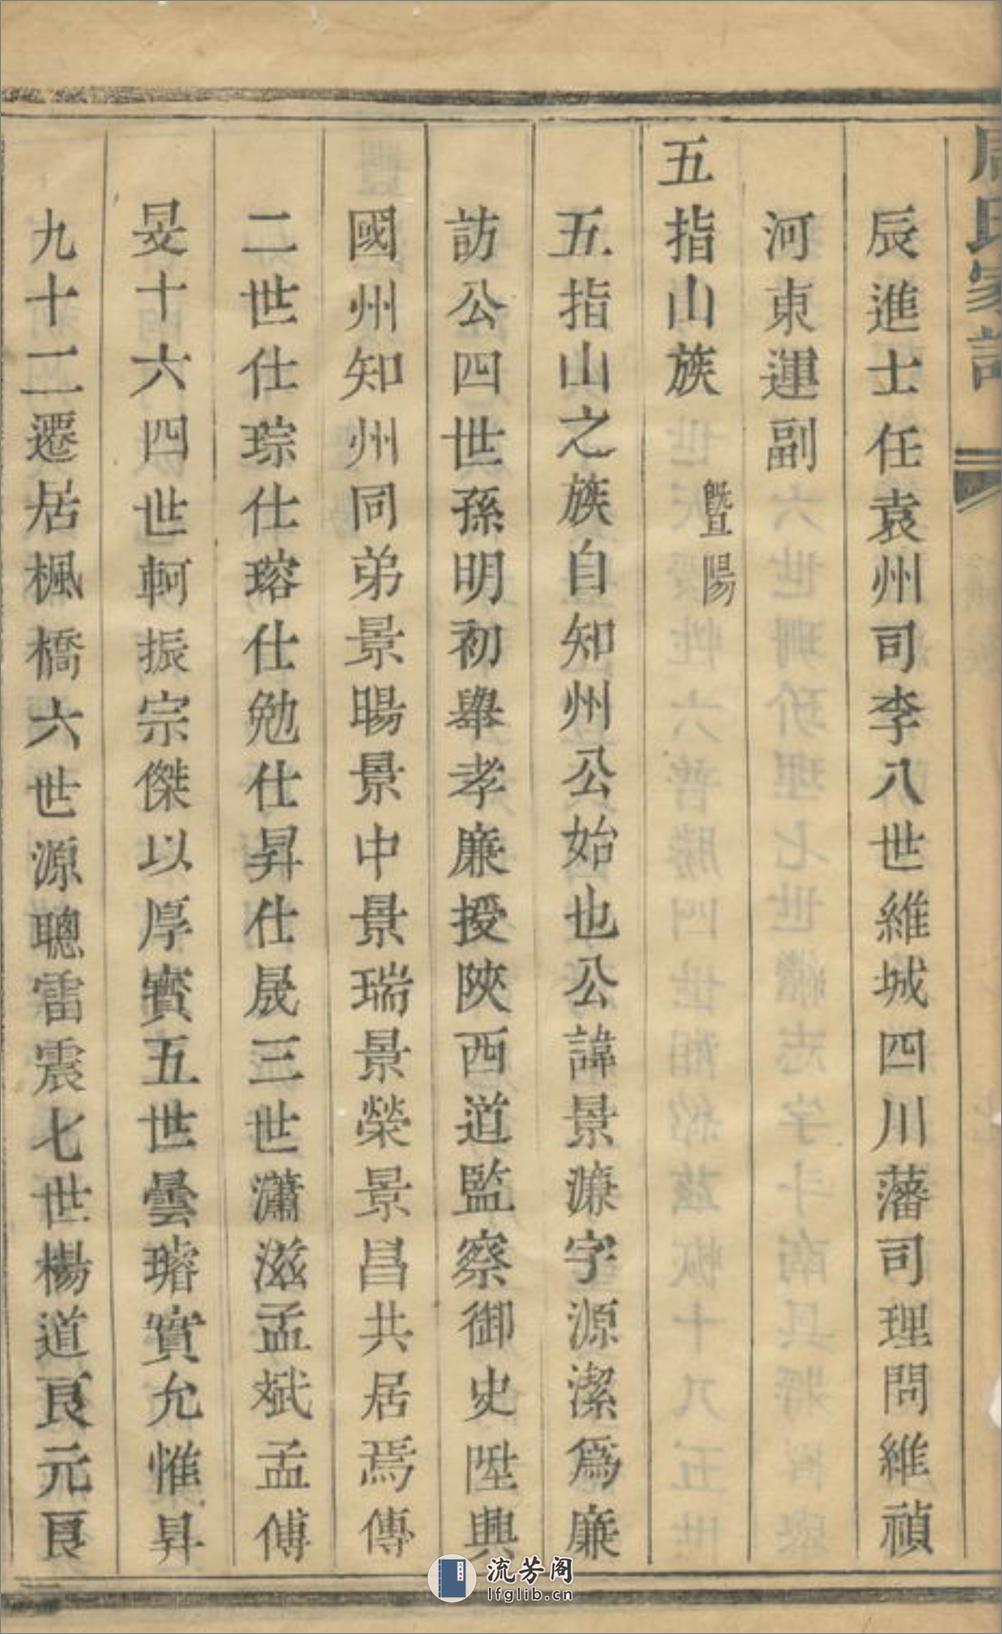 周氏家譜
辰進士任袁州司李八世維城四川藩司理問維禎
河東運副
五指山族 暨陽
五指山之族自知州公始也公諱景濂字源潔為廉
訪公四世孫明初舉孝廉授陝西道監察御史陞興
國州知州同弟景暘景中景瑞景榮景昌共居焉傳
二世仕琮仕瑢仕勉仕昇仕晟三世瀟滋孟斌孟傅
旻十六四世軻振宗傑以厚實五世曇璿實允惟昇
九十二遷居楓橋六世源聰雷震七世楊道良元良
流芳阁
lfglib.cn